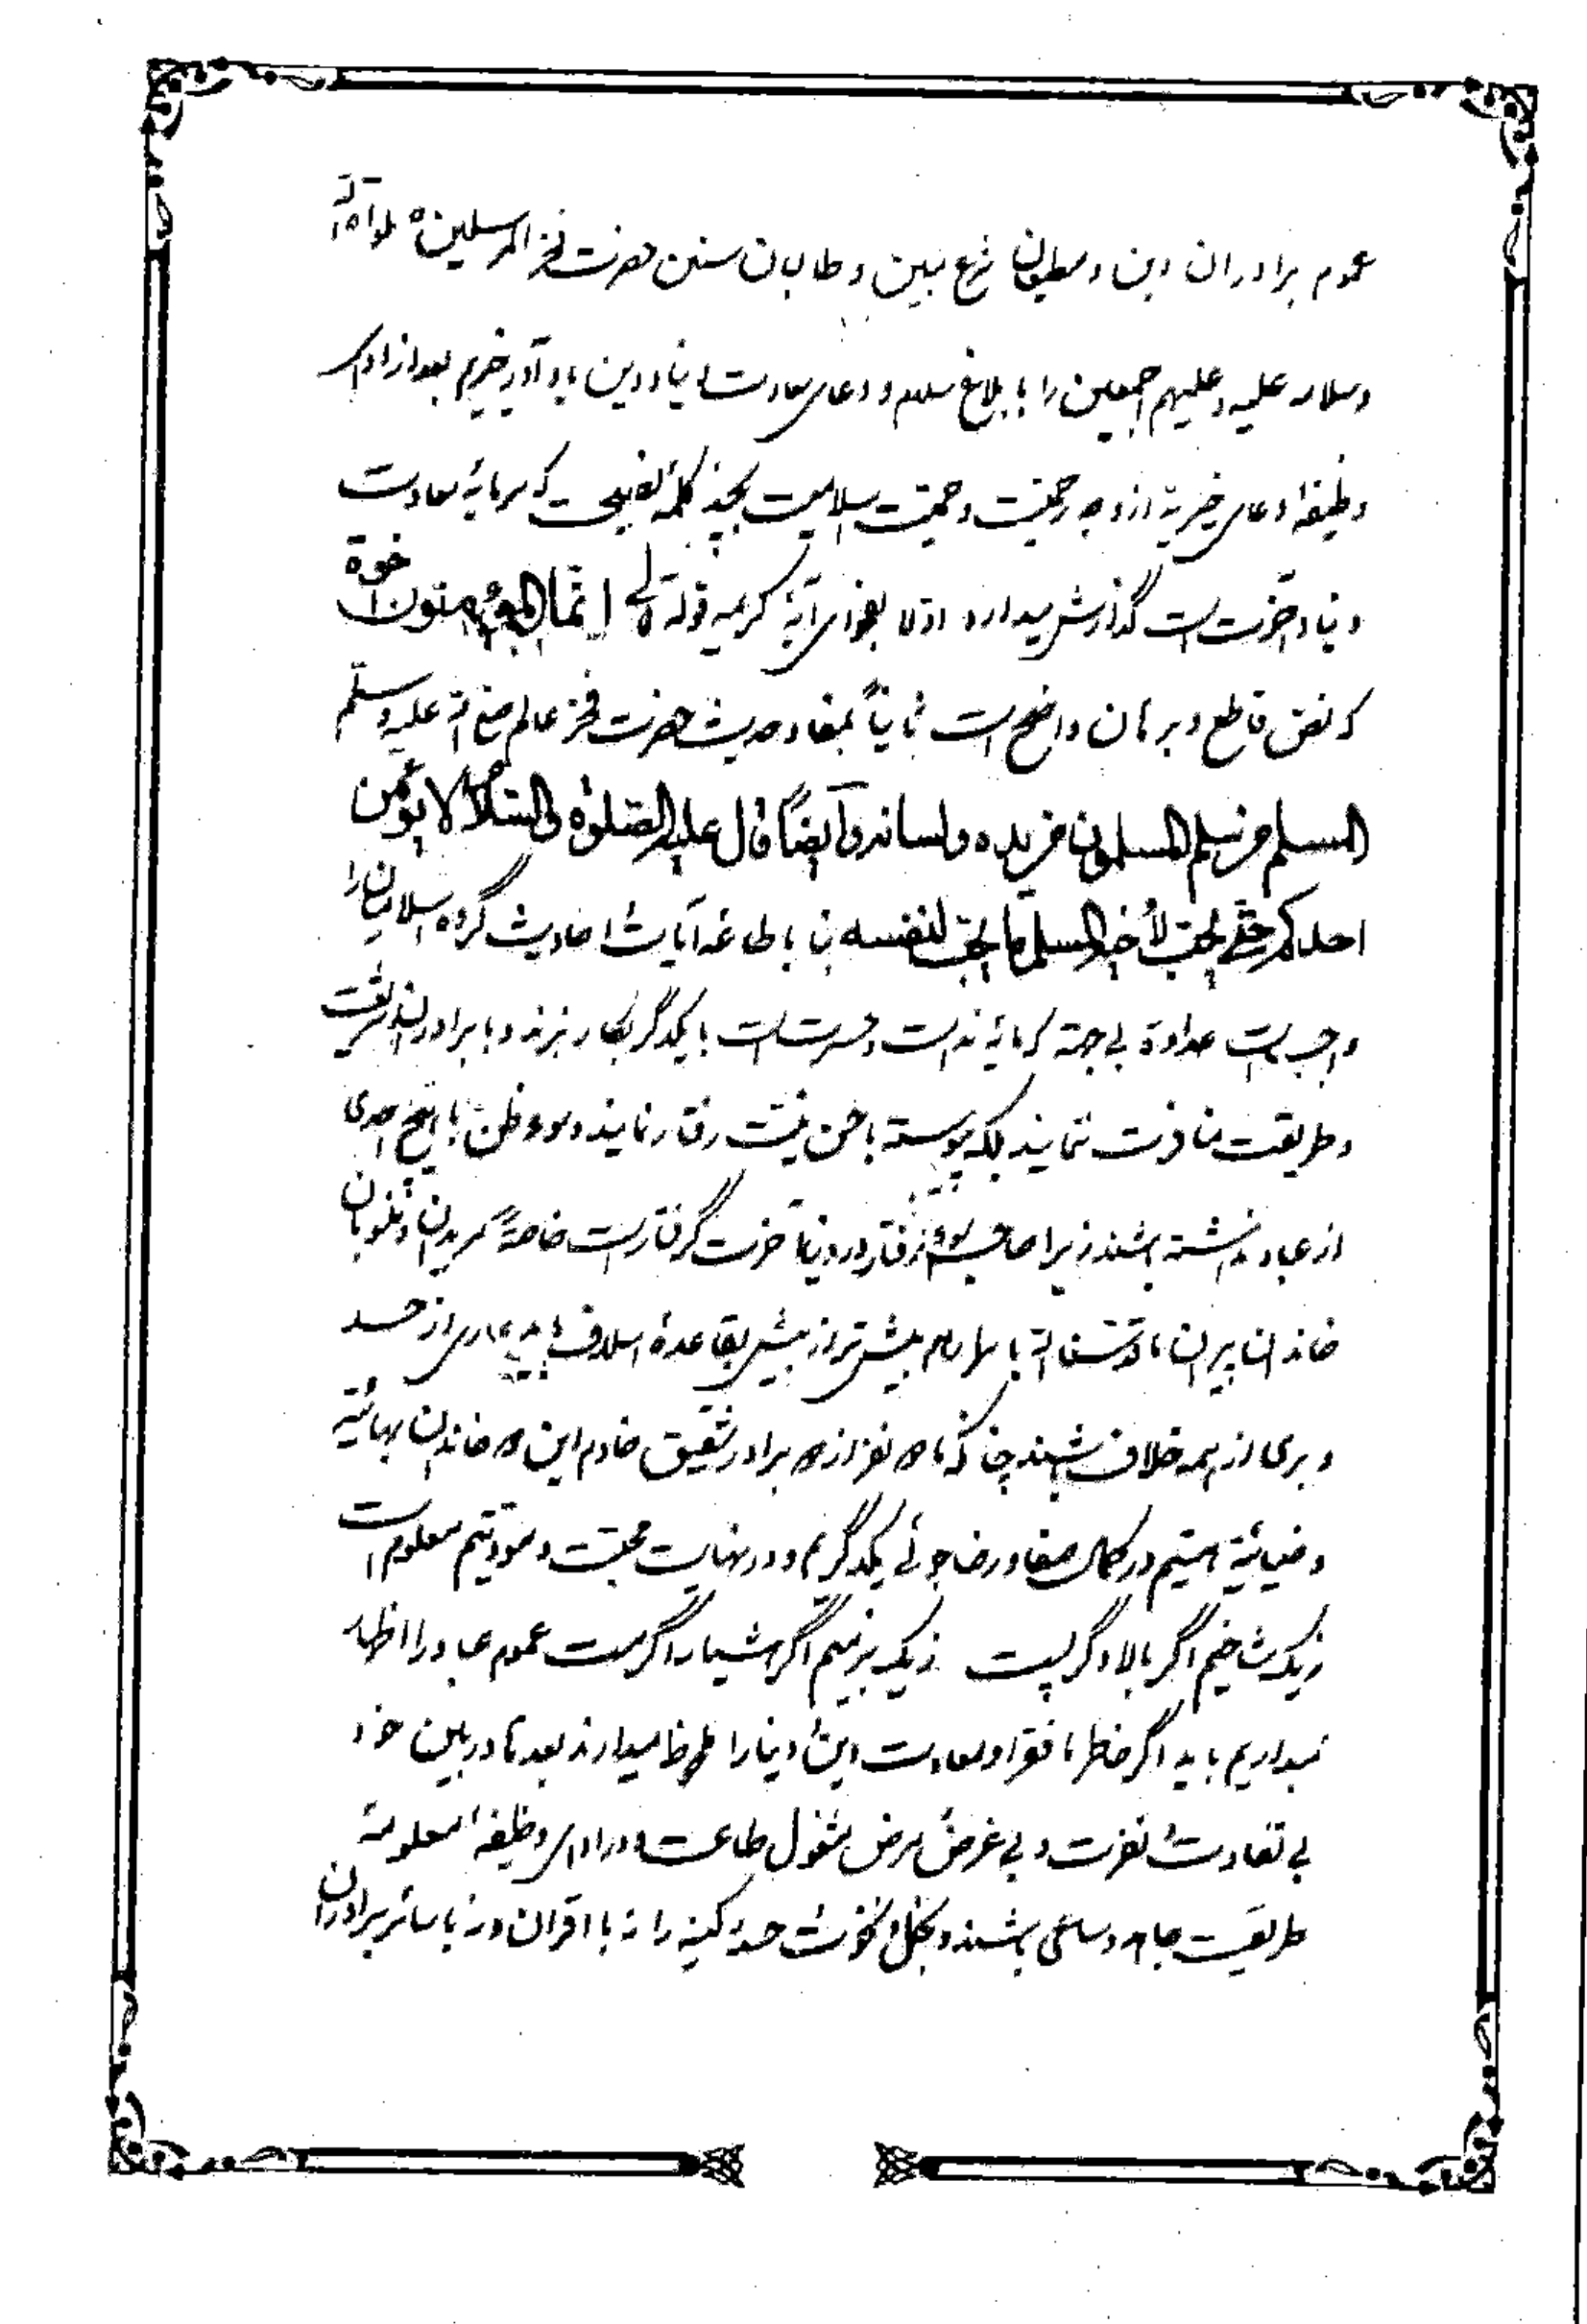 عموم برادران دین و مطیعان شرع مبین و طالبان سنن حضرت فخر المرسلین صلواة الله
وسلامه علیه وعلیهم اجمعین را با بلاغ سلام و دعای سعادت دنیا و دین یادآور خیریم بعد از ادای
وظیفه دعای خیریه از وجه حقیقت و حمیت اسلامیت بچند کلمه نصیحت که سرمایه سعادت
دنیا و آخرت است گذارش میدارد اولا بفحوای آیه کریمه قوله تعالی انما المؤمنون اخوة
که نص قاطع و برهان واضح است ثانیاً بمفاد حدیث حضرت فخر عالم صلی الله علیه وسلم
المسلم من سلم المسلمون من یده ولسانه وایضاً قال علیه الصلوة والسلام لا یؤمن
احدکم حتی یحب لأخیه المسلم ما یحب لنفسه بنا باطاعه آیات و احادیث گروه اسلامیان را
واجب است عداوة بی جهة که مایه ندامت و حسرت است با یکدگر بکار نبرند و با برادران شریعت
و طریقت منافرت ننمایند بلکه پیوسته با حسن نیت رفتار نمایند و سوء ظن با هیچ احدی
از عباد نداشته باشند زیرا صاحب سوء رفتار در دنیا و آخرت گرفتار است خاصةً مریدان و منسوبان
خاندان پیران ما قدس الله باسرارهم بیش‌تر از پیش بقاعده اسلاف باید عاری از حسد
و بری از همه خلاف باشند چنانکه ما نفر از برادر شقیق خادم این خاندان بهائیه
و ضیائیه هستیم در کمال صفا و رضاجوئی یکدگریم و در نهایت محبت و مودتیم معلوم است
زیک شاخیم اگر بالا وگر پست زیک بزمیم اگر هشیار اگر مست عموم عباد را اظهار
میداریم باید اگر خاطر ما فقرا و سعادت دین و دنیا را ملحوظ میدارند بعد ما در بین خود
بی تفاوت و نفرت و بی غرض و مرض مشغول طاعت و در ادای وظیفه معلومه
طریقت جاهد و ساعی باشند و بخل و نخوت و حسد و کینه را نه با اقران و نه با سائر برادران